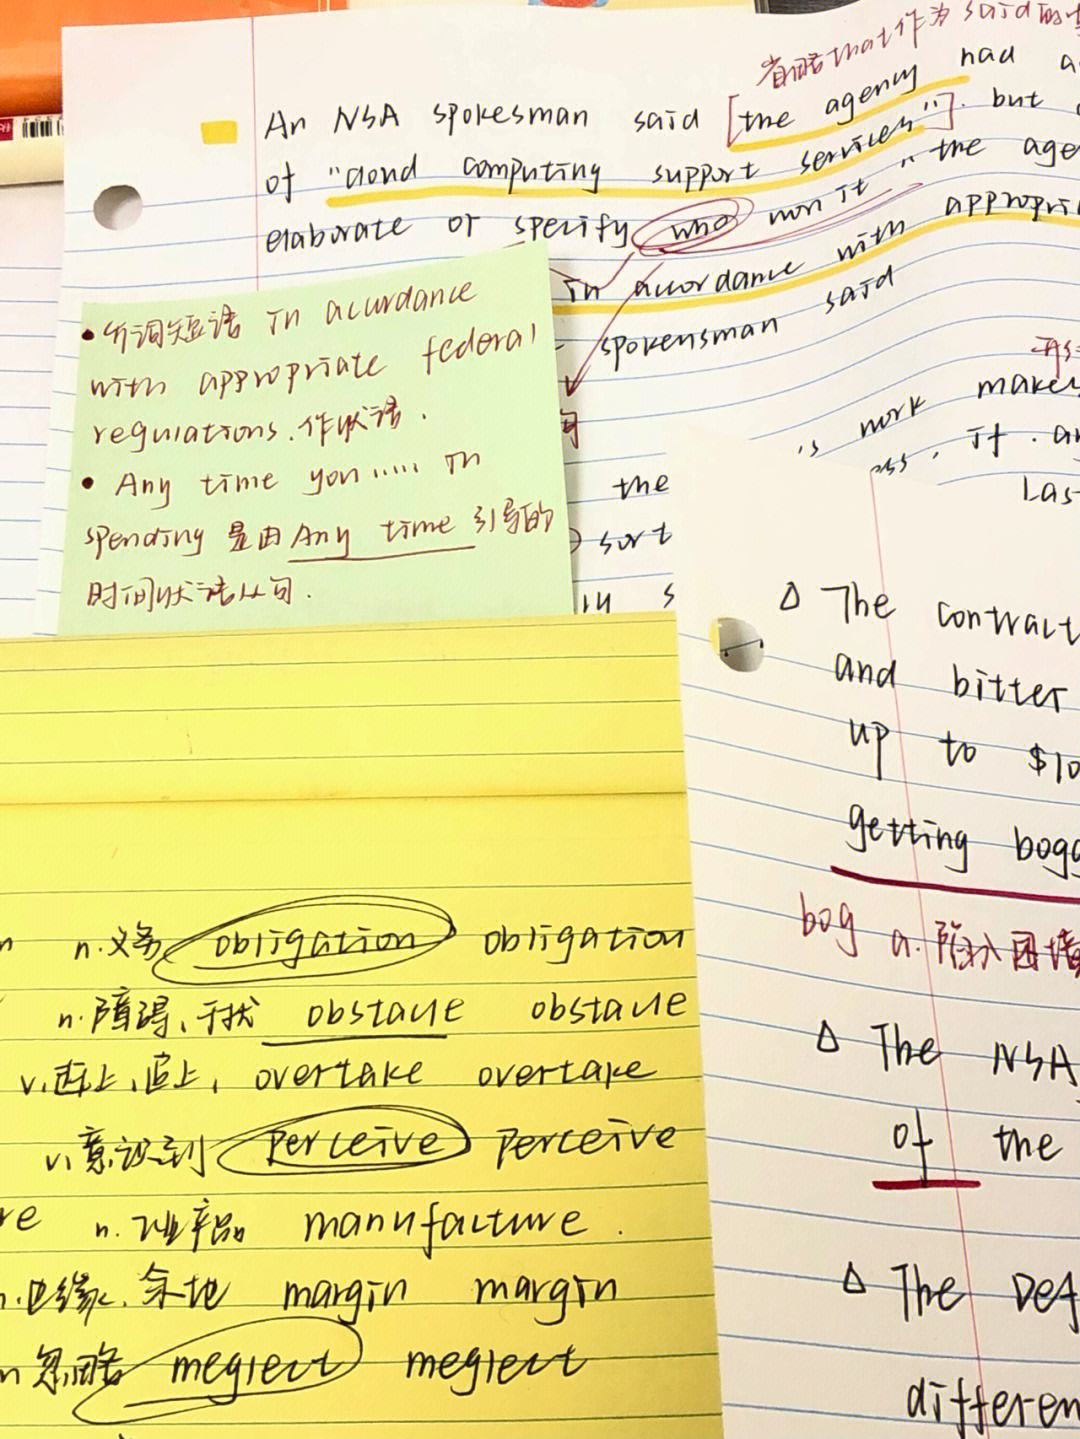 省略that作为said的
An NSA spokesman said [the agency had a
of "aond computing support services"]. but
elaborate or specify who won it, "the age
in accordance with appropri
spokensman said
• 介词短语 in accordance
with appropriate federal
regulations.作状语.
• Any time you ..... in
spending 是由 Any time 引导的
时间状语从句.
句
's work makes
ess, it. an
the Las
sort
s
△ The contract
and bitter
up to $10
getting bogg
bog a.陷入困境
△ The NSA
of the
△ The Def
differen
n n.义务 obligation obligation
n.障碍、干扰 obstacle obstacle
v.赶上,追上, overtake overtake
v.意识到 perceive perceive
re n.工业产品 manufacture.
n.边缘、余地 margin margin
n 忽略 meglect meglect